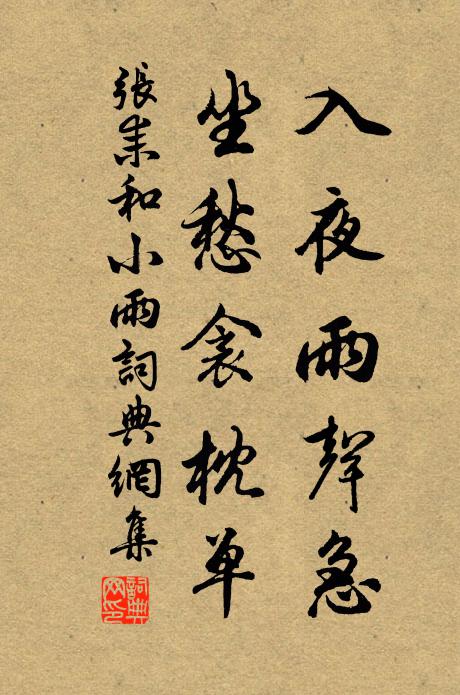 入夜雨聲急
坐愁衾枕單
張耒和小雨詞典網集
詞典网印